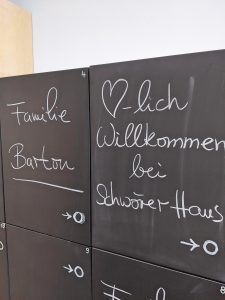 4
Familie
Barton
→O
♡-lich
Willkommen
bei
Schwörer Haus
→O
9
→O
8